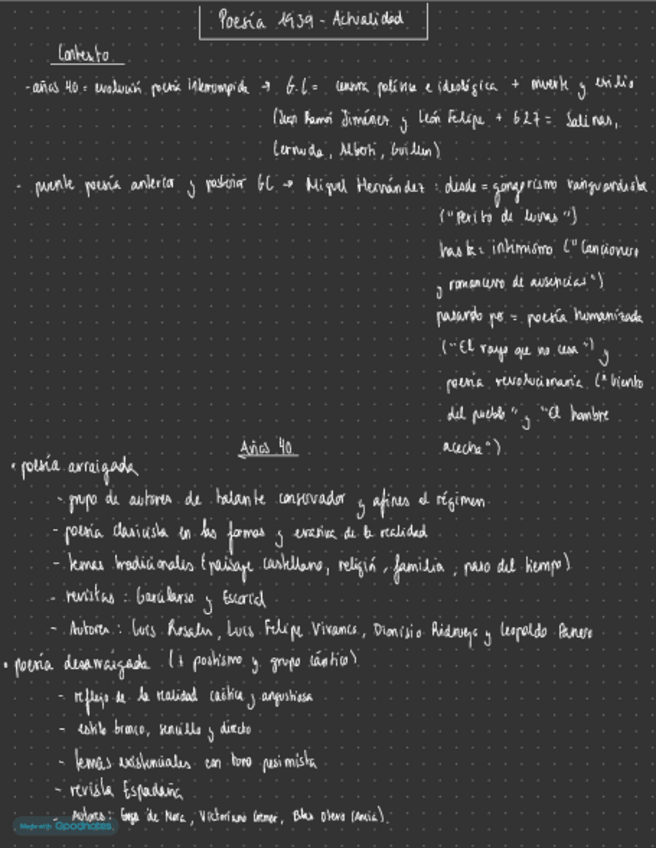 Poesía 1939 - Actualidad
Contexto
- años 40 = evolución poesía interrumpida → G.C = censura política e ideológica + muerte y exilio
(Juan Ramón Jiménez y León Felipe + G27 = Salinas,
Cernuda, Alberti, Guillén)
- puente poesía anterior y posterior GC → Miguel Hernández : desde = gongorismo vanguardista
("Perito de lunas")
hasta: intimismo ("Cancionero
y romancero de ausencias")
pasando por = poesía humanizada
("El rayo que no cesa") y
poesía revolucionaria ("Viento
del pueblo" y "El hombre
acecha")
Años 40
• poesía arraigada
- grupo de autores de talante conservador y afines al régimen
- poesía clasicista en las formas y evasiva de la realidad
- temas tradicionales (paisaje castellano, religión, familia, paso del tiempo)
- revistas : Garcilaso y Escorial
- Autores : Luis Rosales, Luis Felipe Vivanco, Dionisio Ridruejo y Leopoldo Panero
• poesía desarraigada (+ postismo y grupo cántico)
- reflejo de la realidad caótica y angustiosa
- estilo bronco, sencillo y directo
- temas existenciales con tono pesimista
- revista Espadaña
- Autores : de Nora, Victoriano Cremer, Blas Otero (Ancia).
Made with Goodnotes